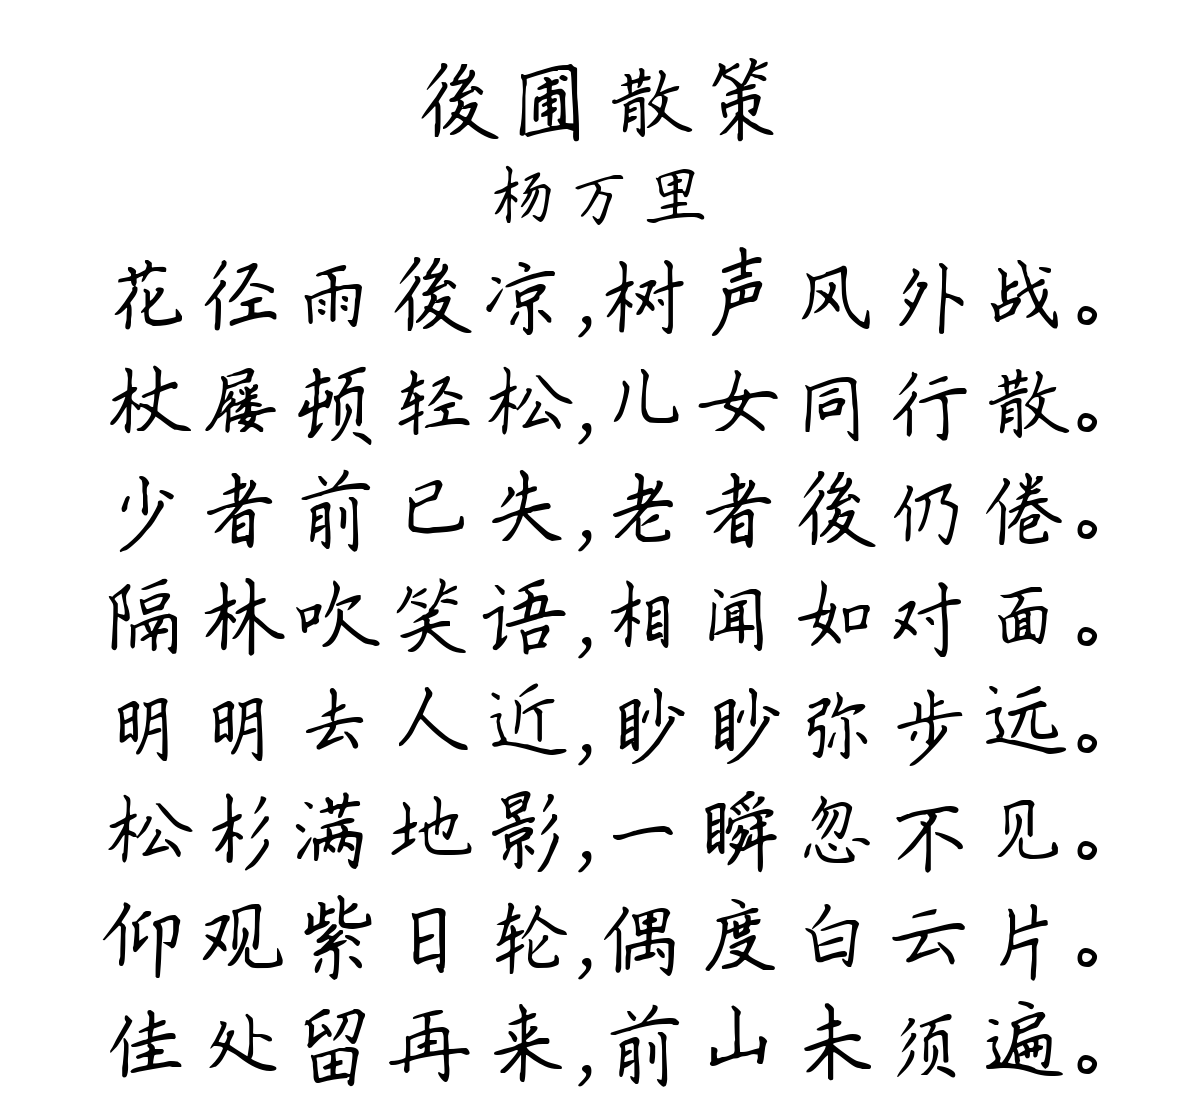 後圃散策
杨万里
花径雨後凉,树声风外战。
杖屦顿轻松,儿女同行散。
少者前已失,老者後仍倦。
隔林吹笑语,相闻如对面。
明明去人近,眇眇弥步远。
松杉满地影,一瞬忽不见。
仰观紫日轮,偶度白云片。
佳处留再来,前山未须遍。